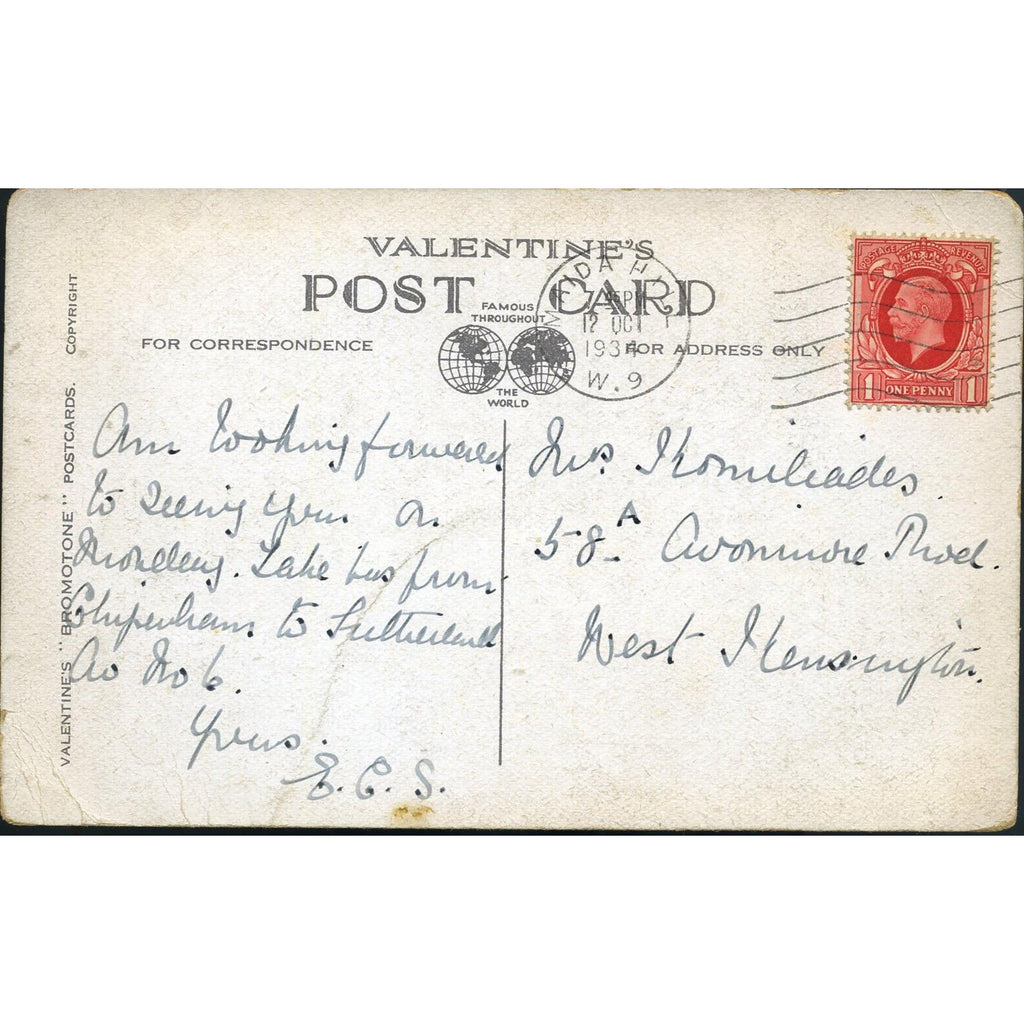 VALENTINE'S
POST CARD
FAMOUS
THROUGHOUT
THE
WORLD
FOR CORRESPONDENCE
FOR ADDRESS ONLY
VALENTINE'S "BROMOTONE" POSTCARDS. COPYRIGHT
MAIDA HILL
12 OCT
1934
W.9
POSTAGE REVENUE
1 ONE PENNY 1
Am looking forward
to seeing you on
Monday. Take bus from
Chipenham to Sutherland
Av No 6.
Yours.
E.C.S.
Mrs.
58A Avonmore Road.
West Kensington.